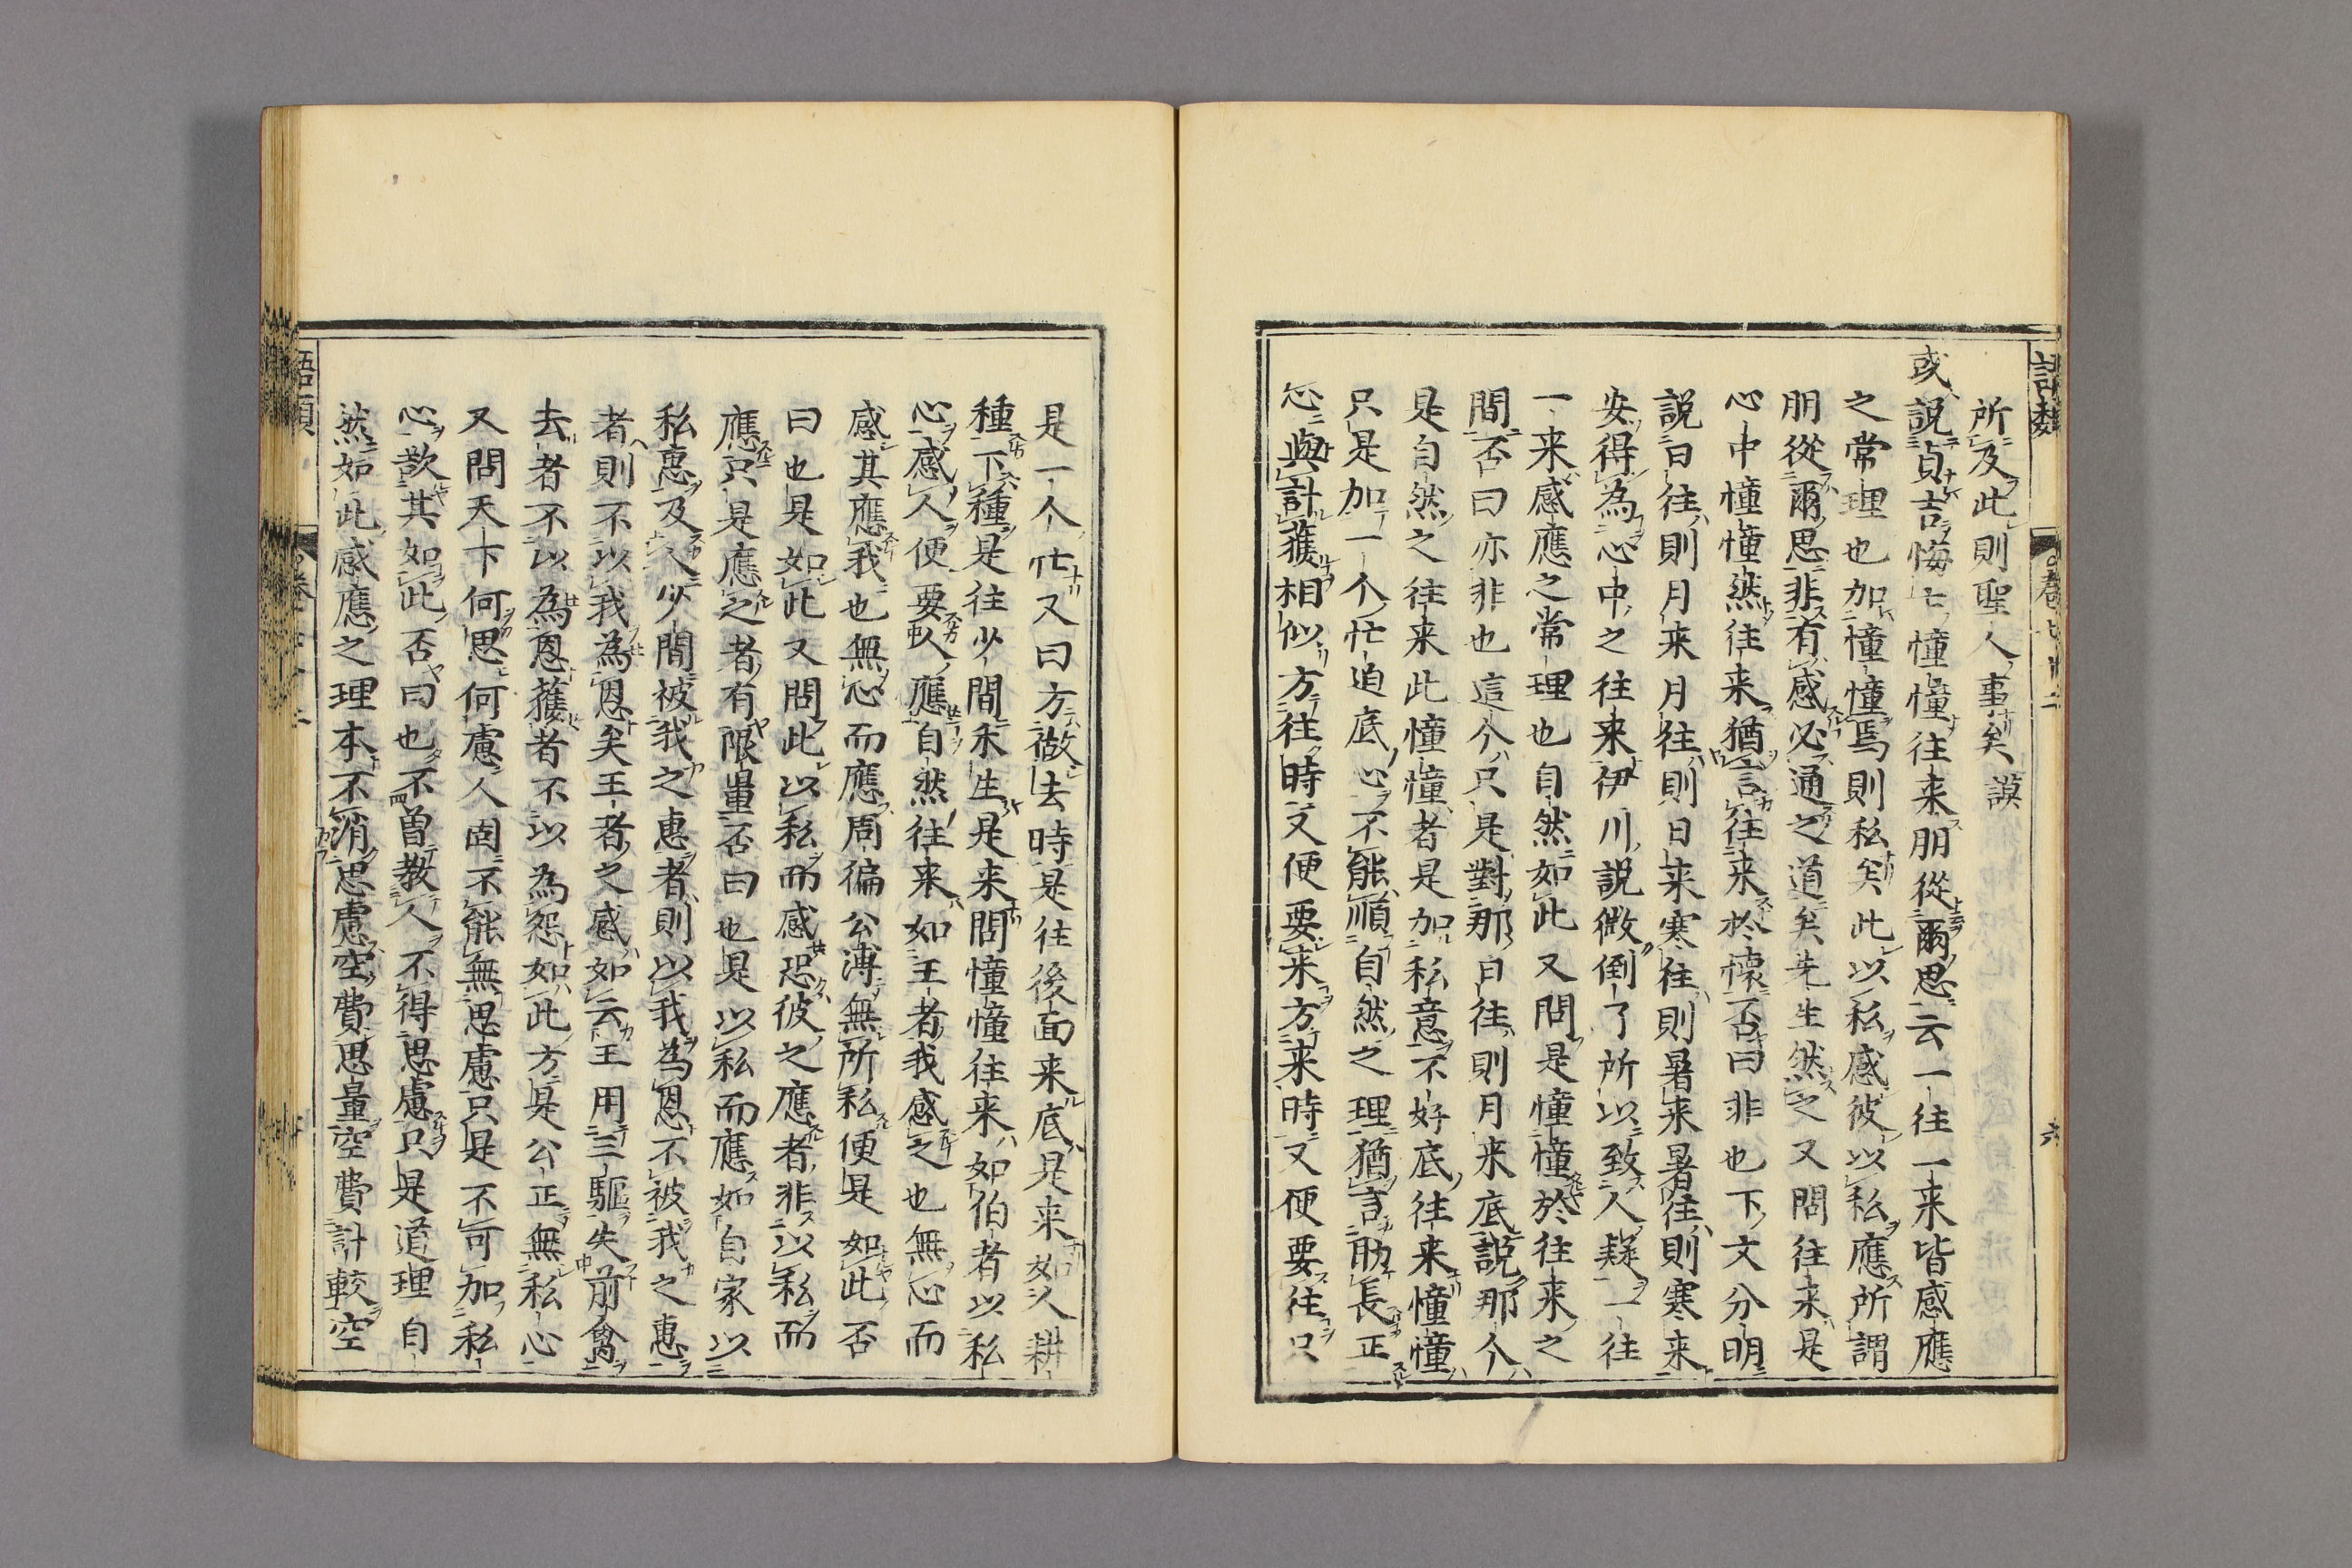 語類
卷七十二
六
所及此則聖人事矣 謨
或說貞吉悔亡憧憧往来朋從爾思云一往一来皆感應
之常理也加憧憧焉則私矣此以私感彼以私應所謂
朋從爾思非有感必通之道矣先生然之又問往来是
心中憧憧然往来猶言往来於懷否曰非也下文分明
說日往則月来月往則日来寒往則暑来暑往則寒来
安得為心中之往来伊川說微倒了所以致人疑一往
一来感應之常理也自然如此又問是憧憧於往来之
間否曰亦非也這个只是對那日往則月来底說那个
是自然之往来此憧憧者是加私意不好底往来憧憧
只是加一个忙迫底心不能順自然之理猶言助長正
心與計獲相似方往時又便要来方来時又便要往只
是一个忙又曰方做去時是往後面来底是来如人耕
種下種是往少間禾生是来問憧憧往来如伯者以私
心感人便要人應自然往来如王者我感之也無心而
感其應我也無心而應周徧公溥無所私便是如此否
曰也是如此又問此以私而感恐彼之應者非以私而
應只是應之者有限量否曰也是以私而應如自家以
私惠及人少間被我之惠者則以我為恩不被我之惠
者則不以我為恩矣王者之感如云王用三驅失前禽
去者不以為恩獲者不以為怨如此方是公正無私心
又問天下何思何慮人固不能無思慮只是不可加私
心欲其如此否曰也不曾教人不得思慮只是道理自
然如此感應之理本不消思慮空費思量空費計較空
語類